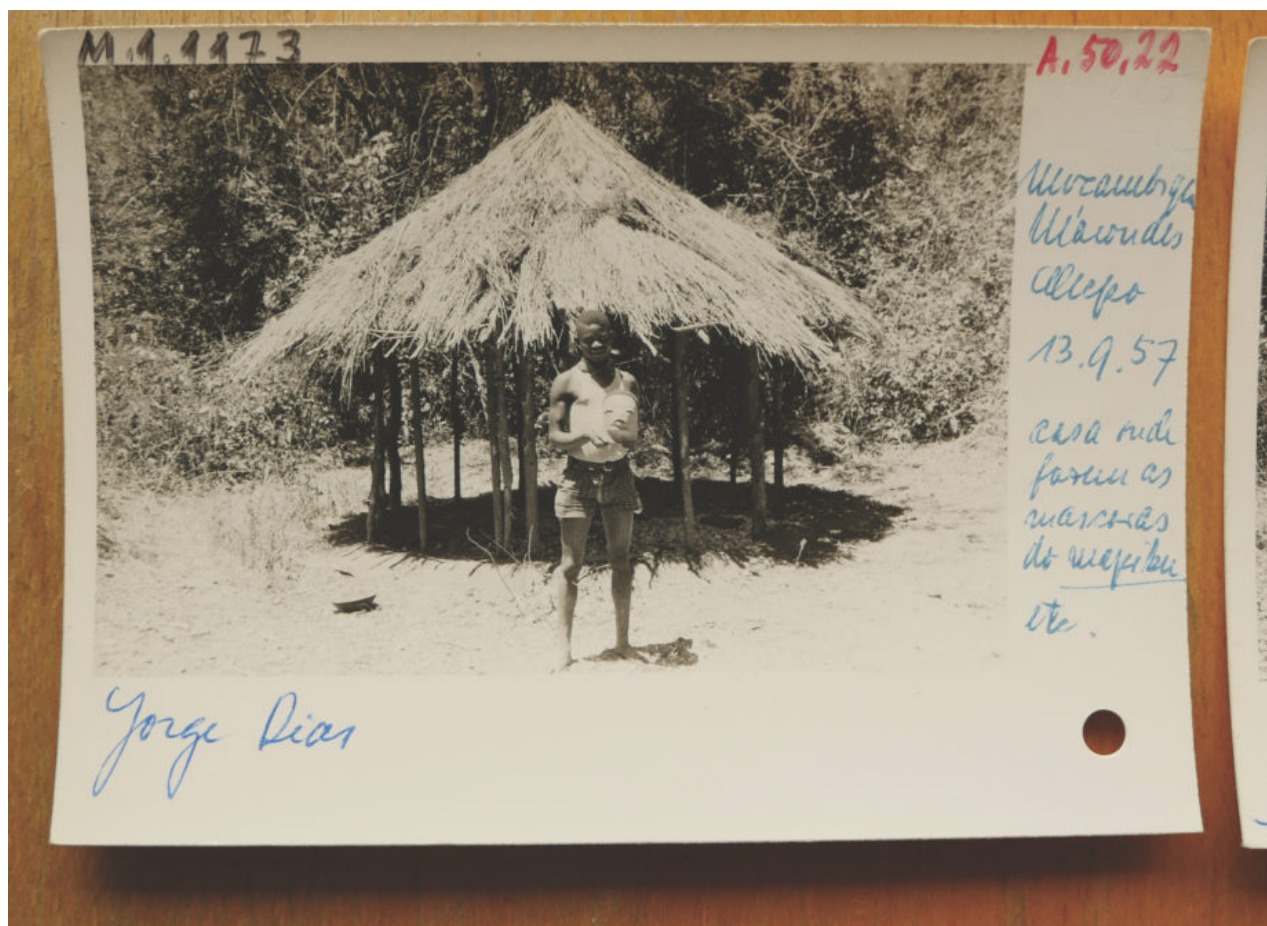 M.1.1173
A.50.22
Mozambique
Macondes
13.9.57
casa onde
fazem as
mascaras
do mapiko
etc.
Jorge Dias